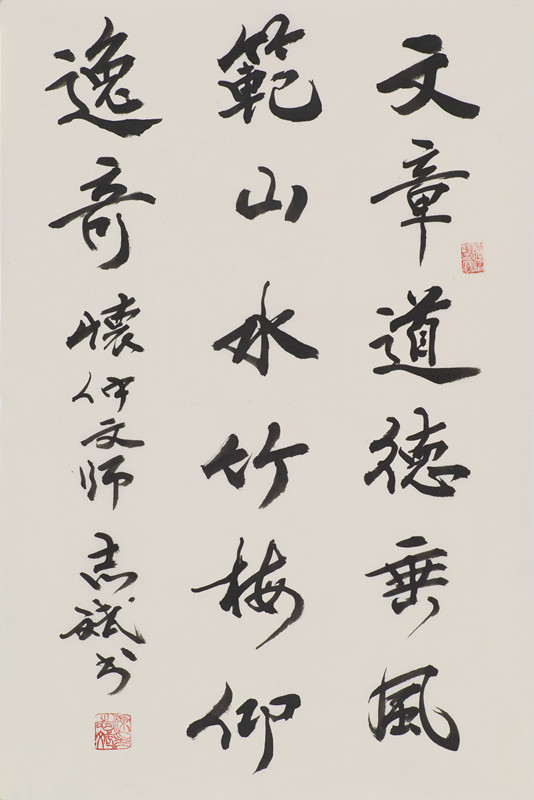 文章道德垂風
範山水竹梅仰
逸奇 懷仲文師 志斌书